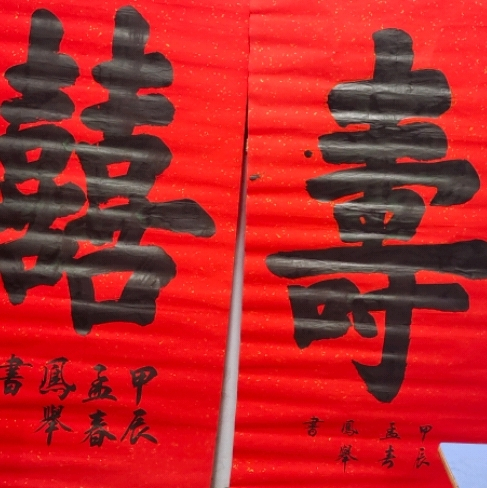 壽
甲辰
孟春
鳳舉
書
囍
甲辰
孟春
鳳舉
書